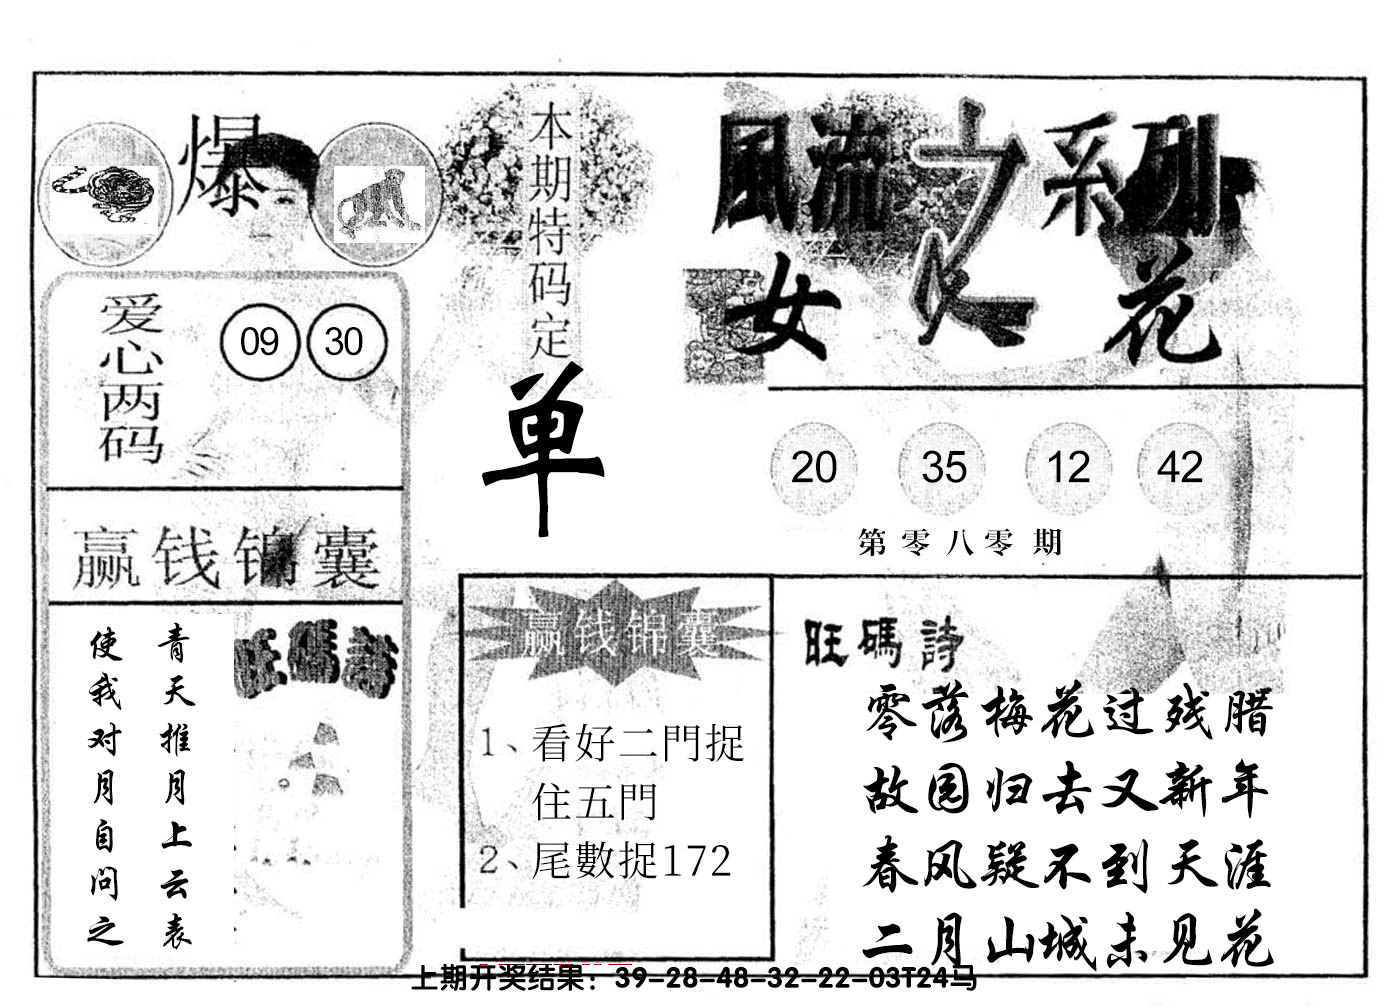 爆
爱心两码
09 30
赢钱锦囊
青天推月上云表
使我对月自问之
旺碼詩
本期特码定
单
風流之系列
女人花
20 35 12 42
第零八零期
赢钱锦囊
1、看好二門捉
住五門
2、尾數捉172
旺碼詩
零落梅花过残腊
故园归去又新年
春风疑不到天涯
二月山城未见花
上期开奖结果：39-28-48-32-22-03T24马